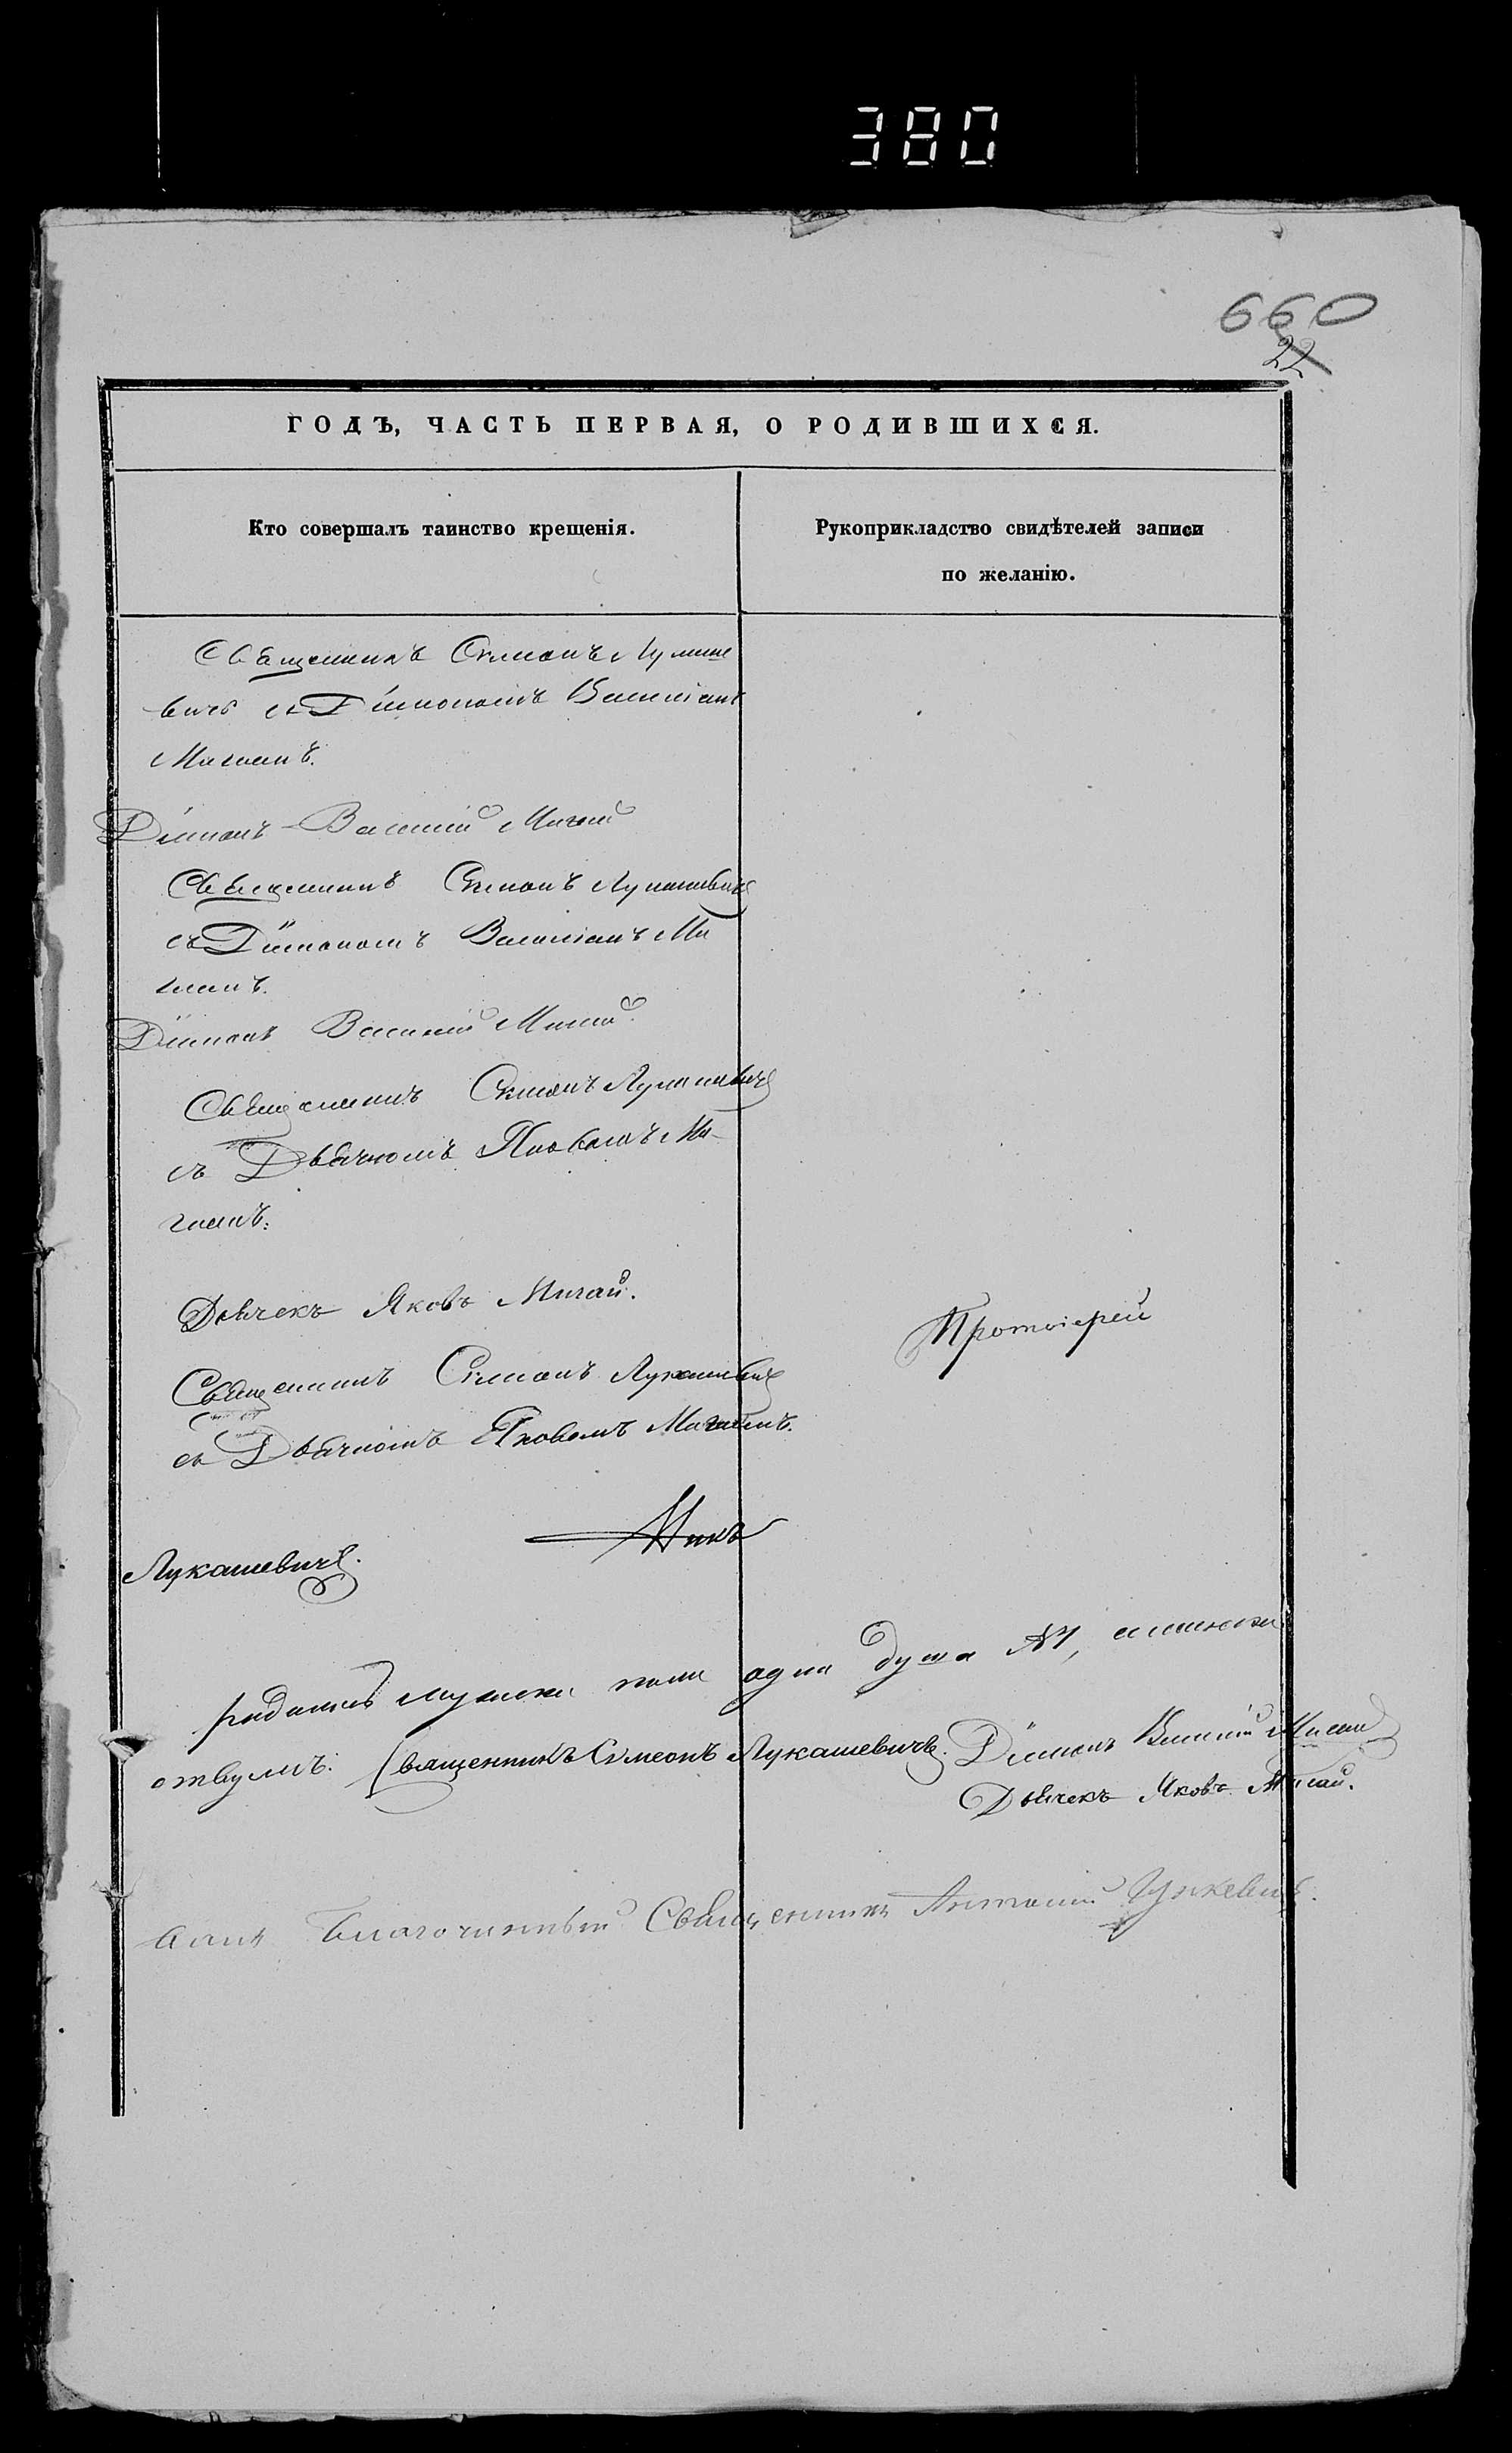 380
660
22
ГОДЪ, ЧАСТЬ ПЕРВАЯ, О РОДИВШИХСЯ.
Кто совершалъ таинство крещенія.
Рукоприкладство свидѣтелей записи
по желанію.
Священникъ Симеонъ Лукаше
вичъ съ Діакономъ Василіемъ
Мигаемъ.
Діаконъ Василій Мигай
Священникъ Симеонъ Лукашевичъ
съ Діакономъ Василіемъ Ми
гаемъ.
Діаконъ Василій Мигай.
Священникъ Симеонъ Лукашевичъ
съ Дьячкомъ Яковомъ Ми-
гаемъ.
Дьячекъ Яковъ Мигай.
Протоіерей
Священникъ Симеонъ Лукашевичъ
съ Дьячкомъ Яковомъ Мигаемъ.
Лукашевичъ.
мужска пола одна душа №1, а женска
Священникъ Симеонъ Лукашевичъ. Діаконъ Василій Мигай
Дьячекъ Яковъ Мигай.
Благочинный Священникъ Антоній